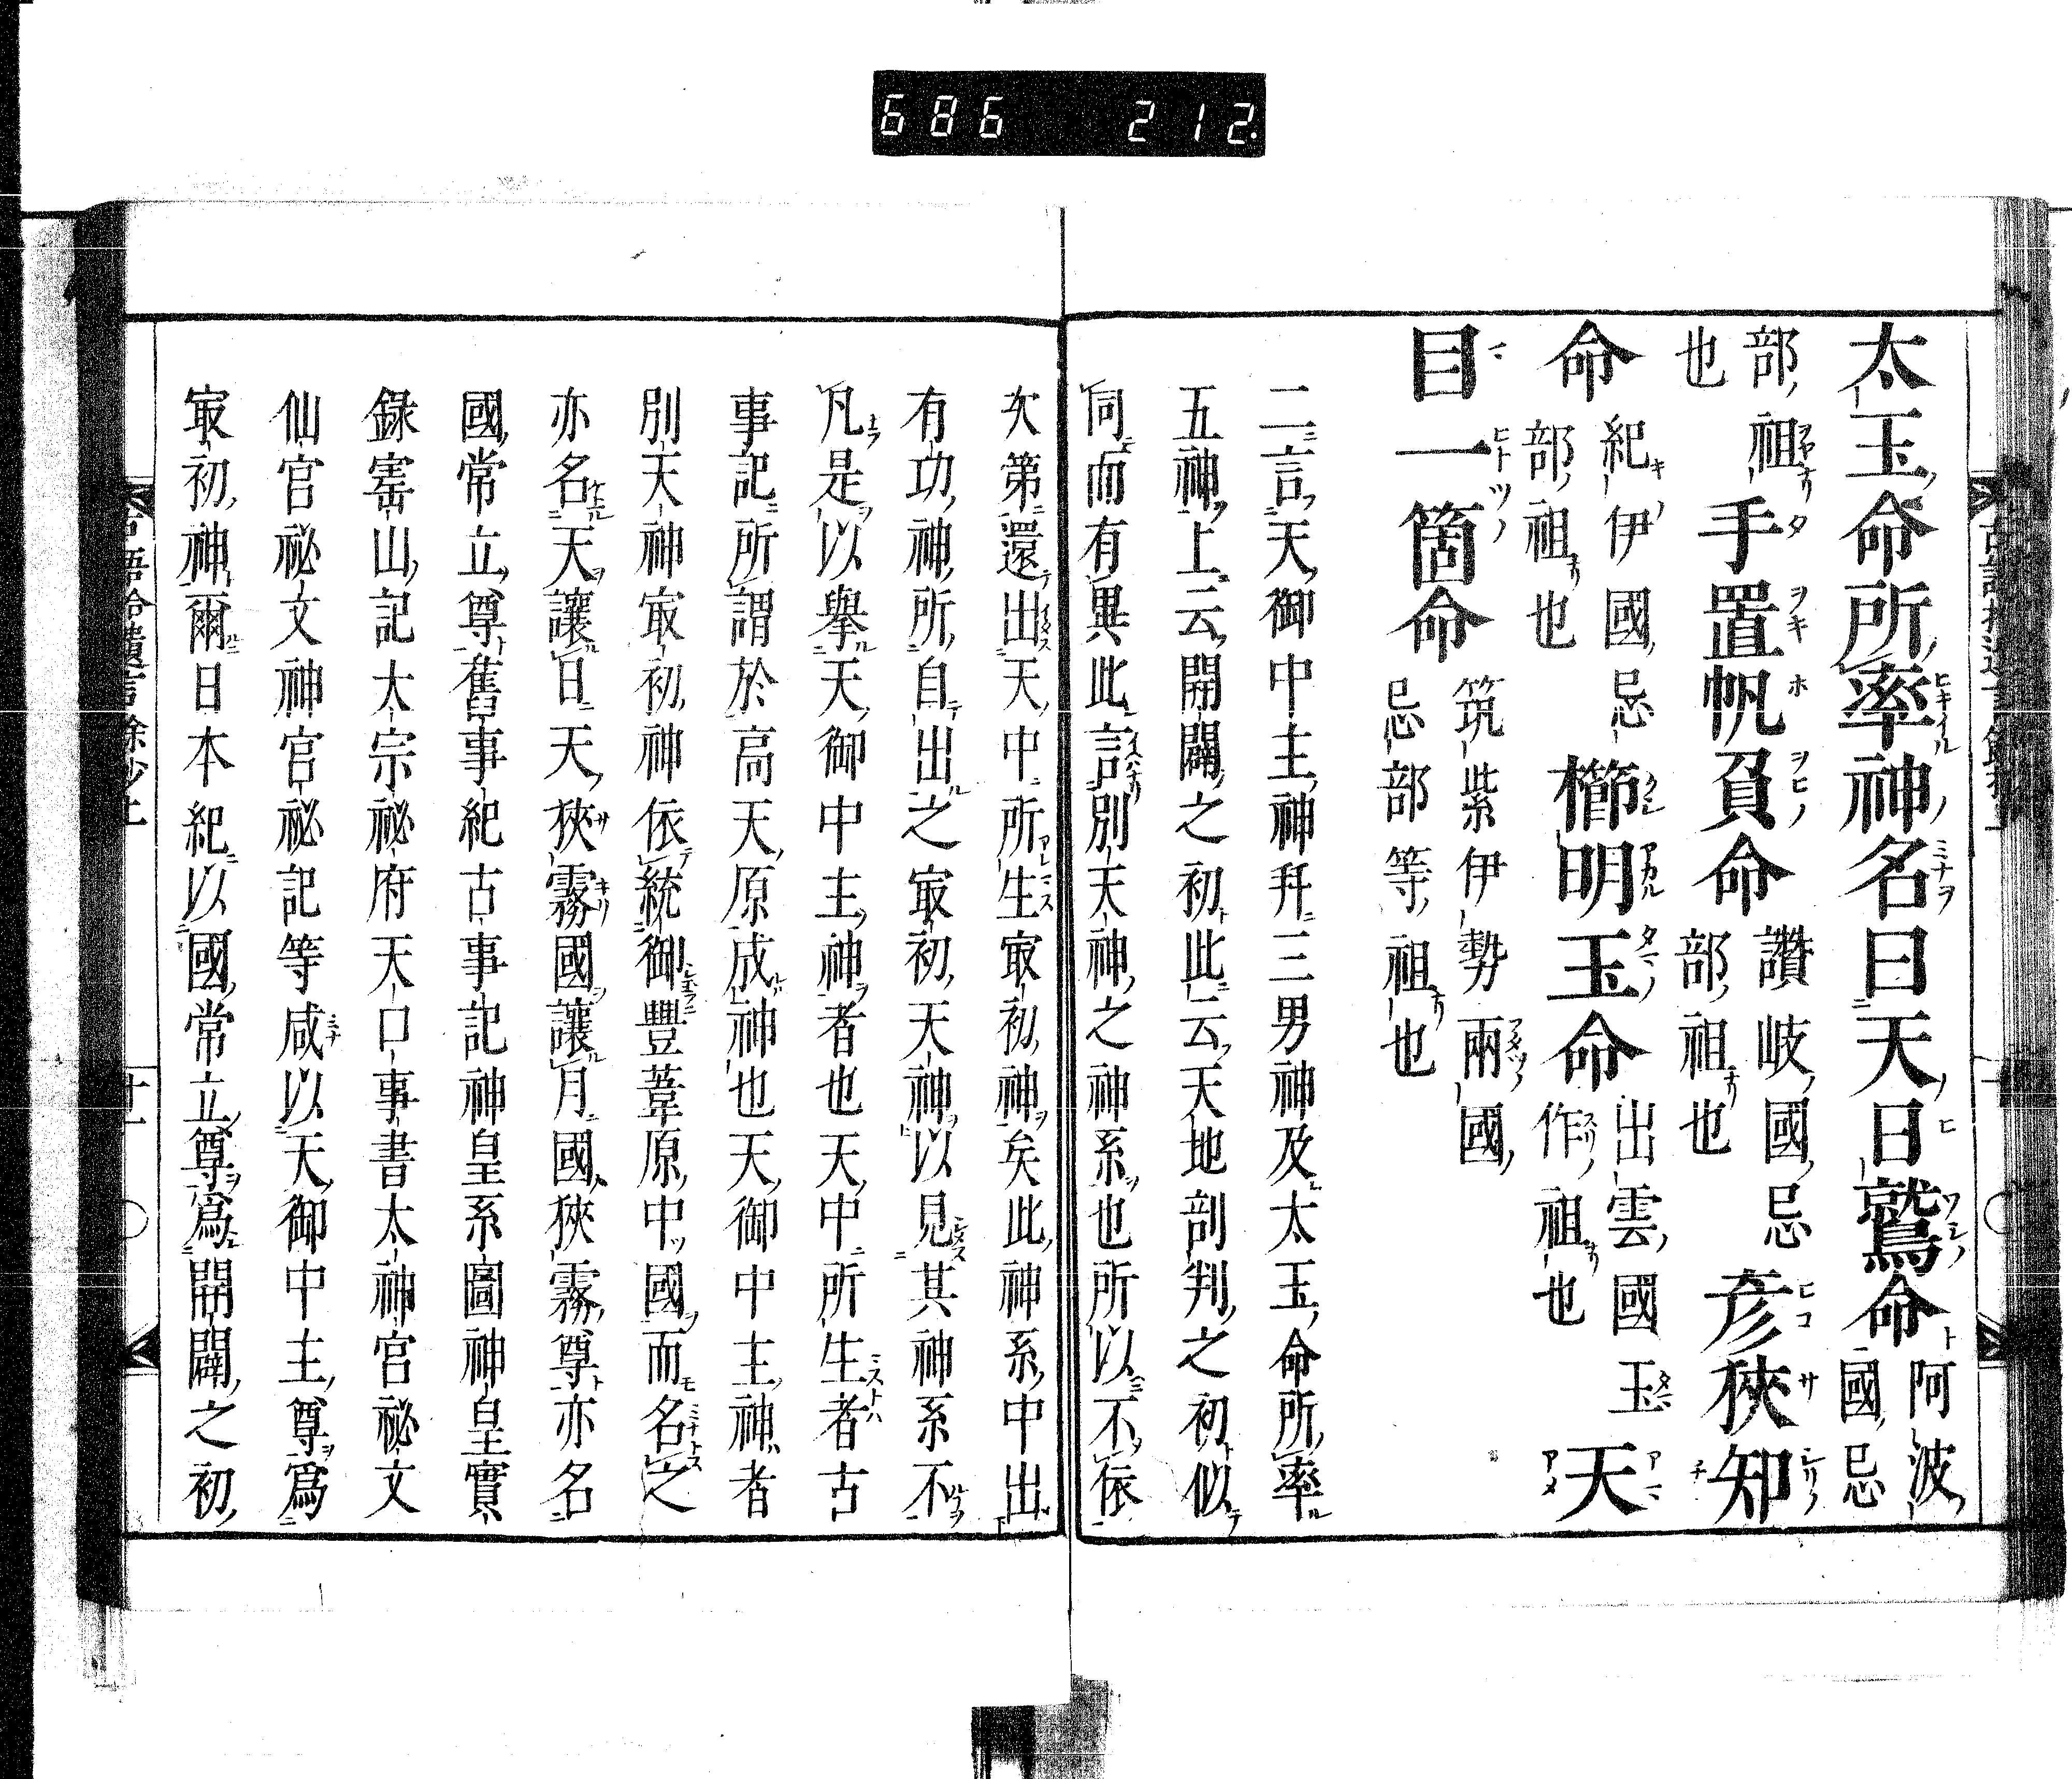 686 212.
太玉命所率神名曰天日鷲命阿波國忌
部祖也手置帆負命讚岐國忌部祖也彥狹知
命紀伊國忌部祖也櫛明玉命出雲國玉作祖也天
目一箇命筑紫伊勢兩國忌部等祖也
二言天御中主神幷三男神及太玉命所率
五神上云開闢之初此云天地剖判之初似
同而有異此言別天神之神系也所以不依
次第還出天中所生㝡初神矣此神系中出
有功神所自出之㝡初天神以見其神系不
凡是以擧天御中主神者也天中所生者古
事記所謂於高天原成神也天御中主神者
別天神㝡初神依統御豐葦原中國而名之
亦名天讓日天狹霧國讓月國狹霧尊亦名
國常立尊舊事紀古事記神皇系圖神皇實
錄寚山記太宗祕府天口事書太神宮祕文
仙宮祕文神宮祕記等咸以天御中主尊爲
㝡初神爾日本紀以國常立尊爲開闢之初
古語拾遺言餘抄上
十一